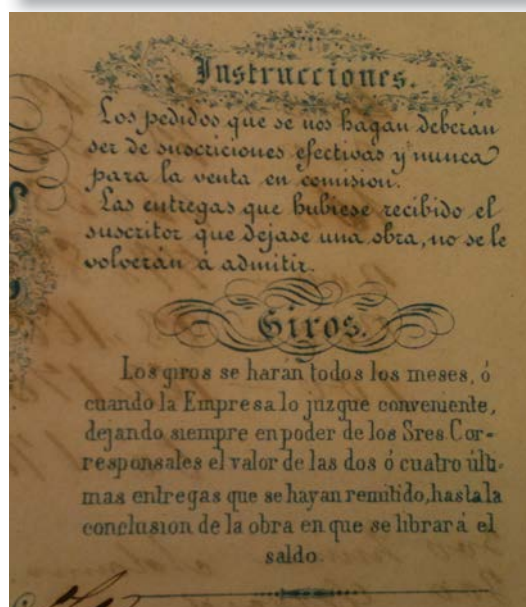 Instrucciones.
Los pedidos que se nos hagan deberán
ser de suscriciones efectivas y nunca
para la venta en comision.
Las entregas que hubiese recibido el
suscritor que dejase una obra, no se le
volverán á admitir.
Giros.
Los giros se harán todos los meses, ó
cuando la Empresa lo juzgue conveniente,
dejando siempre en poder de los Sres. Cor-
responsales el valor de las dos ó cuatro últi-
mas entregas que se hayan remitido, hasta la
conclusion de la obra en que se librará el
saldo.